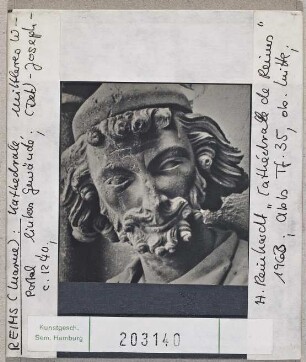 REIMS (Marne): Kathedrale, mittleres W-
Portal, linkes Gewände; (Det) - Joseph -
c. 1240,
H. Reinhardt „Cathédrale de Reims"
1963; Abb. Tf. 35, ob. Mitte;
Kunstgesch.
Sem. Hamburg
203140